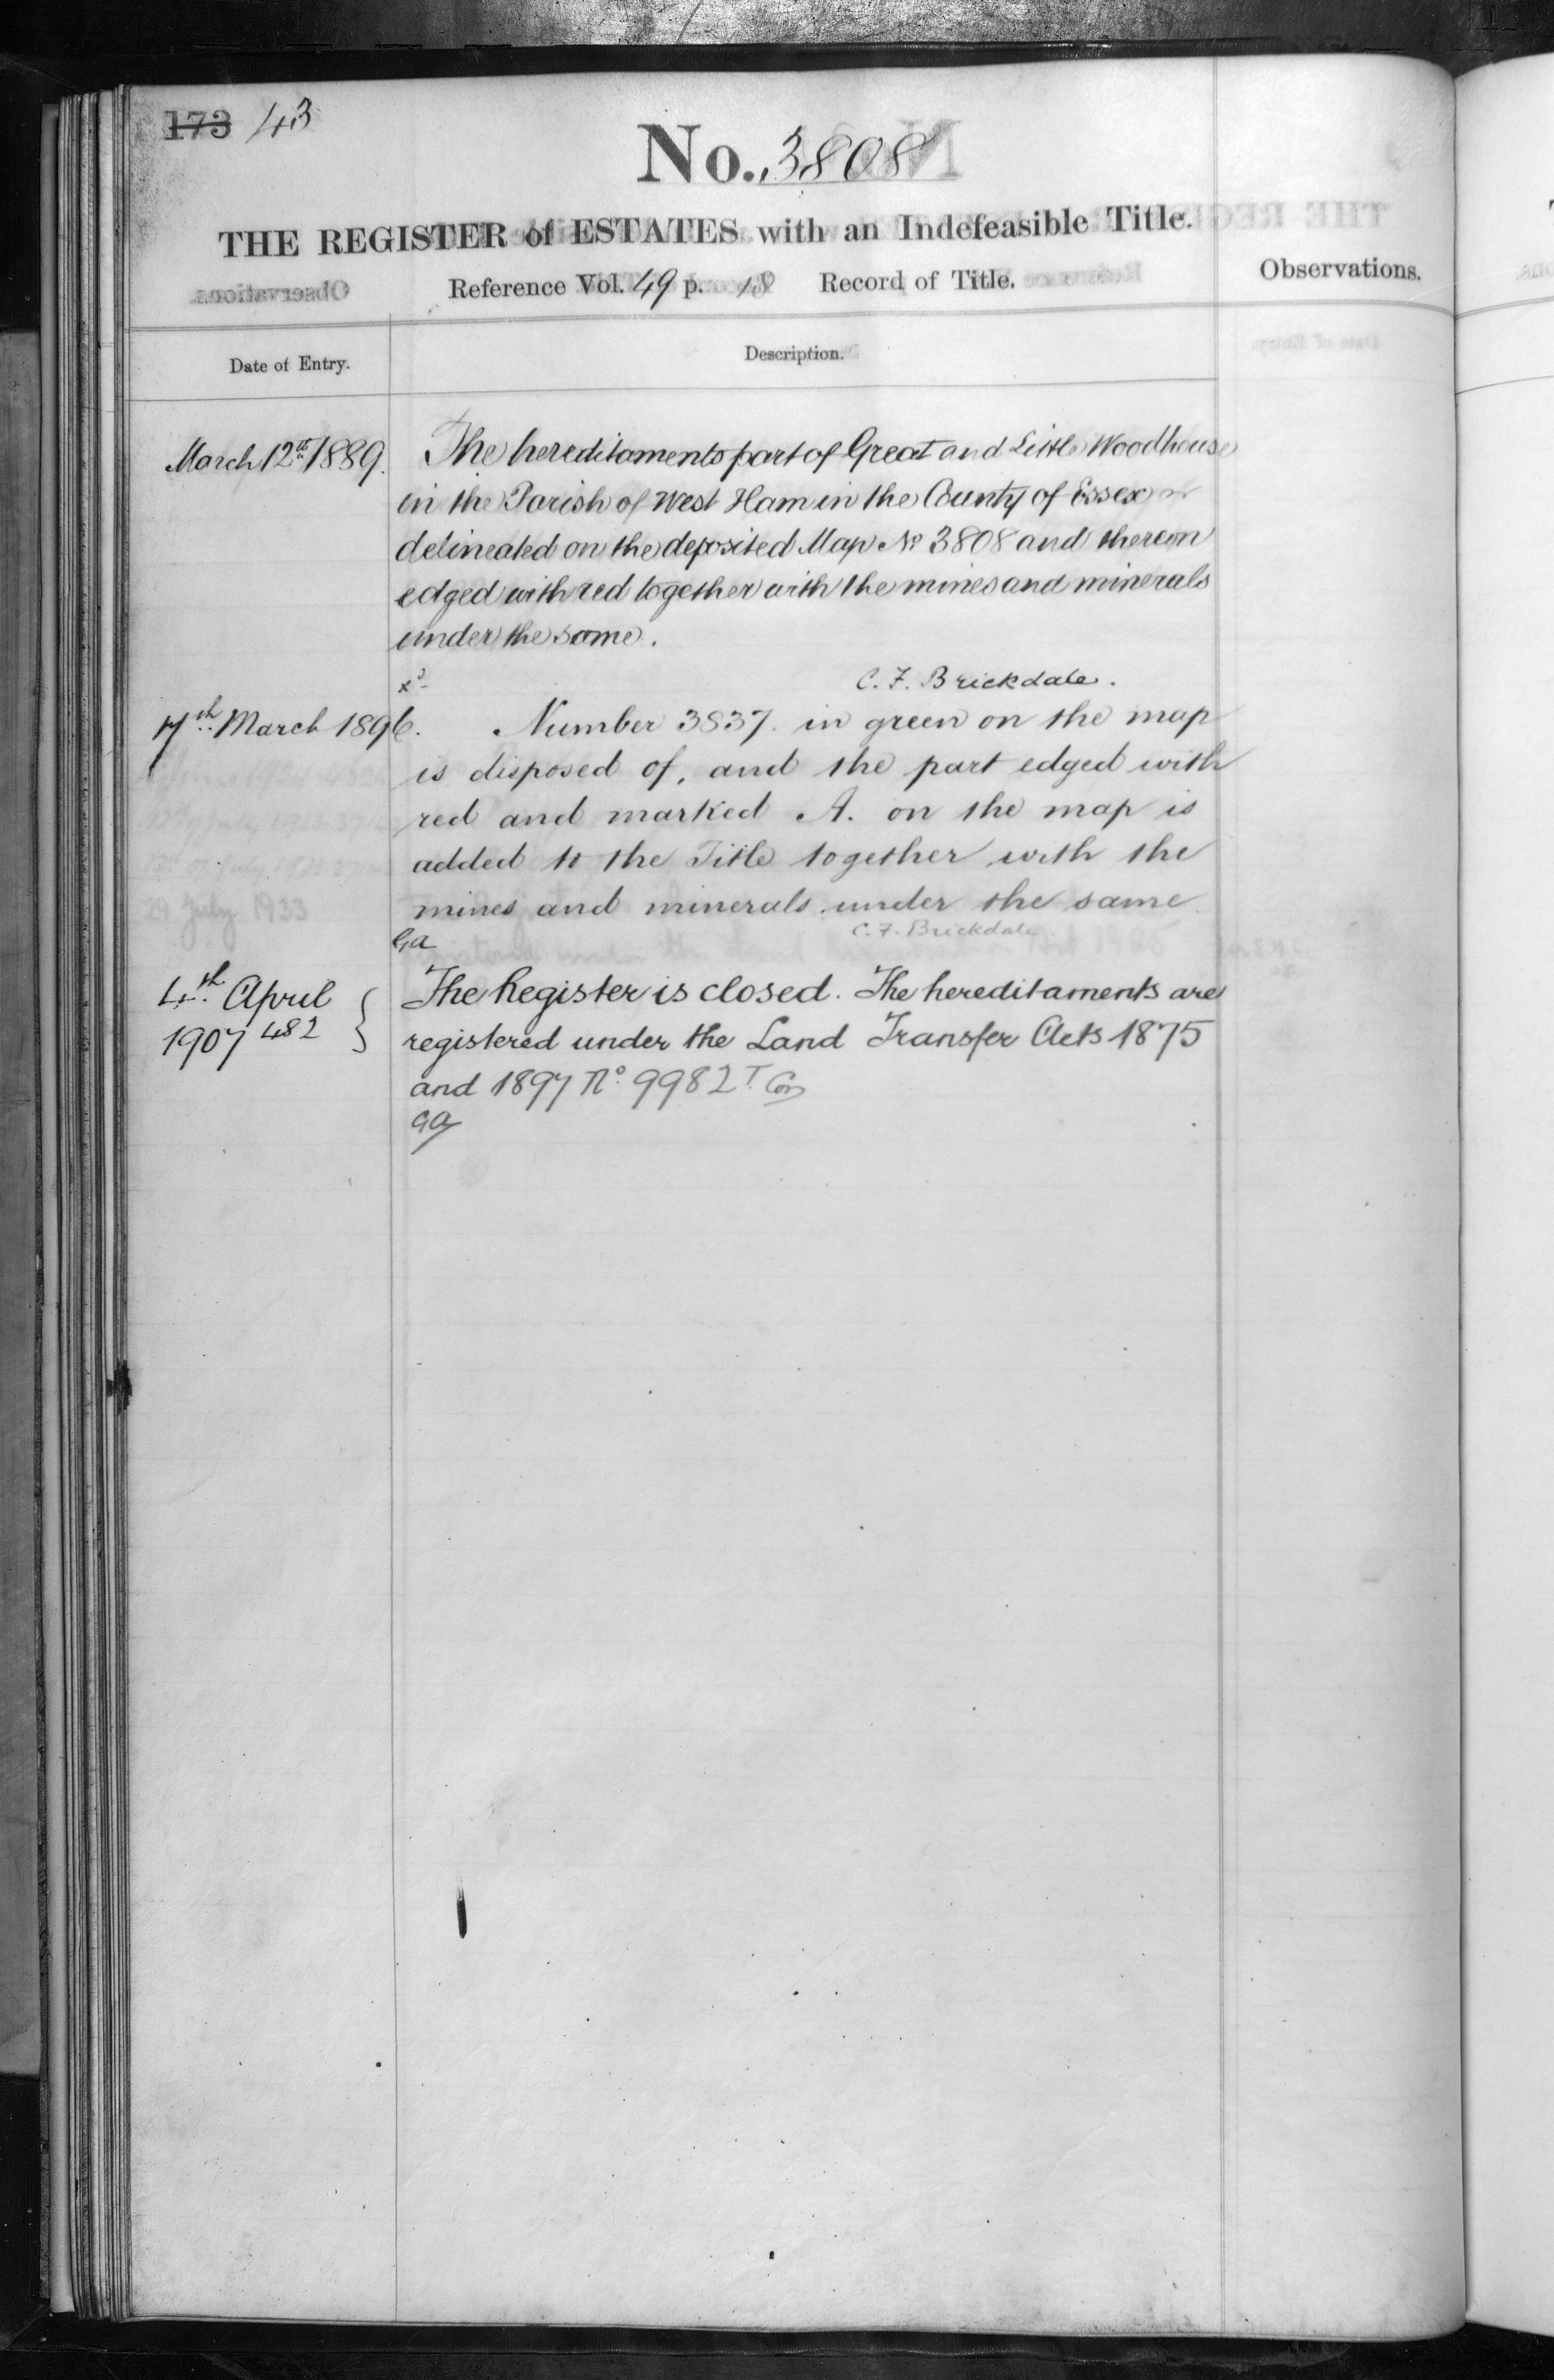 173 43
No. 3808
THE REGISTER of ESTATES with an Indefeasible Title.
Reference Vol. 49 p. Record of Title.
Observations.
Date of Entry.
Description.
March 12th 1889.
The hereditaments part of Great and Little Woodhouse
in the Parish of West Ham in the County of Essex
delineated on the deposited Map No 3808 and thereon
edged with red together with the mines and minerals
under the same.
C. F. Brickdale.
7th March 1896.
Number 3837. in green on the map
is disposed of, and the part edged with
red and marked A. on the map is
added to the Title together with the
mines and minerals under the same
C. F. Brickdale
Ga
4th April
1907 482
The Register is closed. The hereditaments are
registered under the Land Transfer Acts 1875
and 1897 No. 9982
Ga